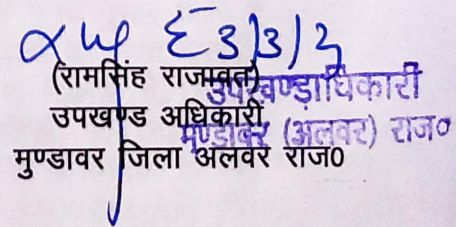 (रामसिंह राजावत)
उपखण्ड अधिकारी
मुण्डावर जिला अलवर राज०
उपखण्ड़ाधिकारी
मुण्डावर (अलवर) राज०